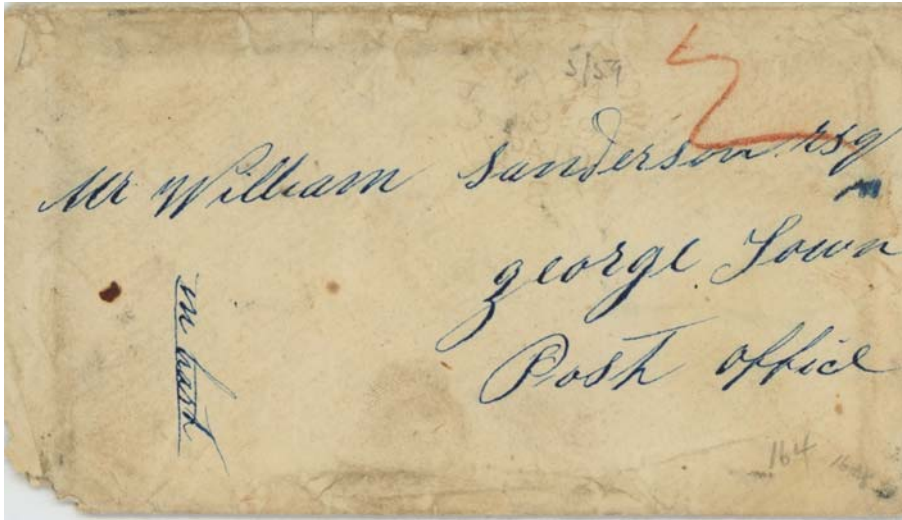 5/59
Mr William Sanderson esq
george Town
Post office
in hast
164